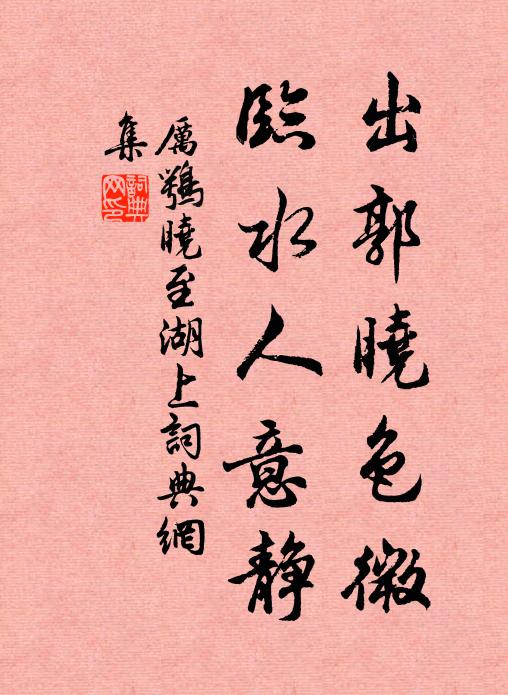 出郭曉色微
臨水人意靜
厲鶚曉至湖上詞典網
集
詞典
网印